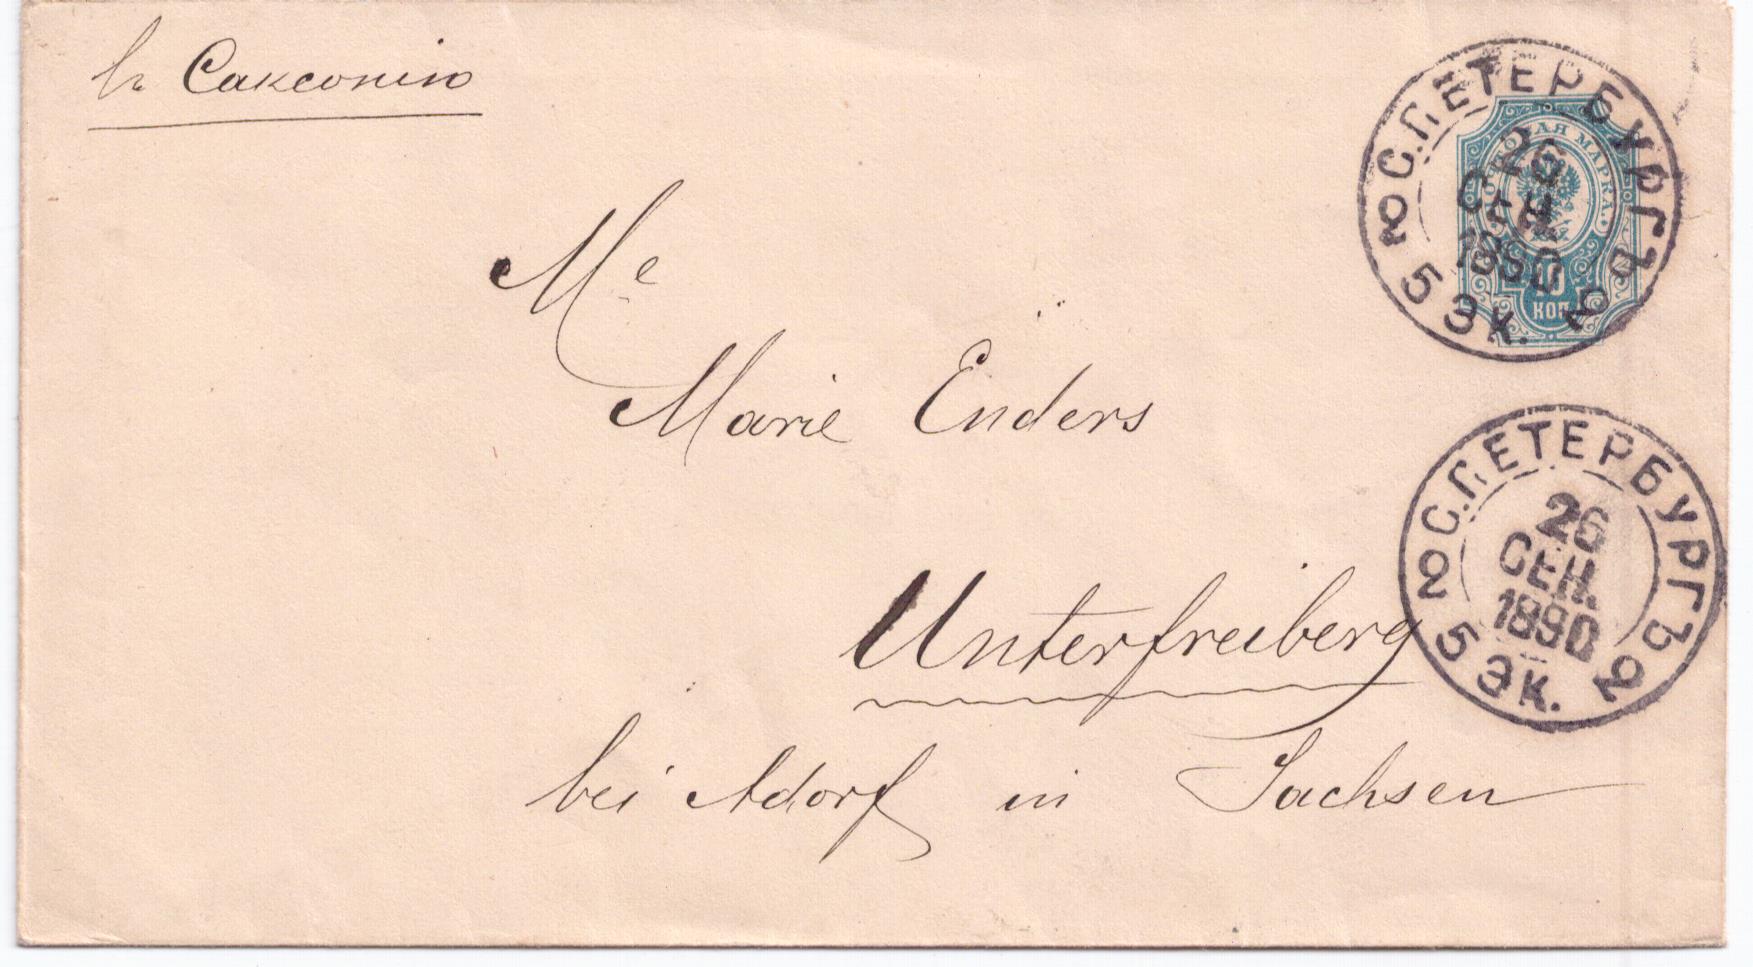 въ Саксонію
С.ПЕТЕРБУРГЪ
ПОЧТОВАЯ МАРКА.
26
СЕН
1890
10
КОП.
2 5 ЭК. 2
Me
Marie Enders
Unterfreiberg
bei Adorf in Sachsen
С.ПЕТЕРБУРГЪ
26
СЕН.
1890
2 5 ЭК. 2